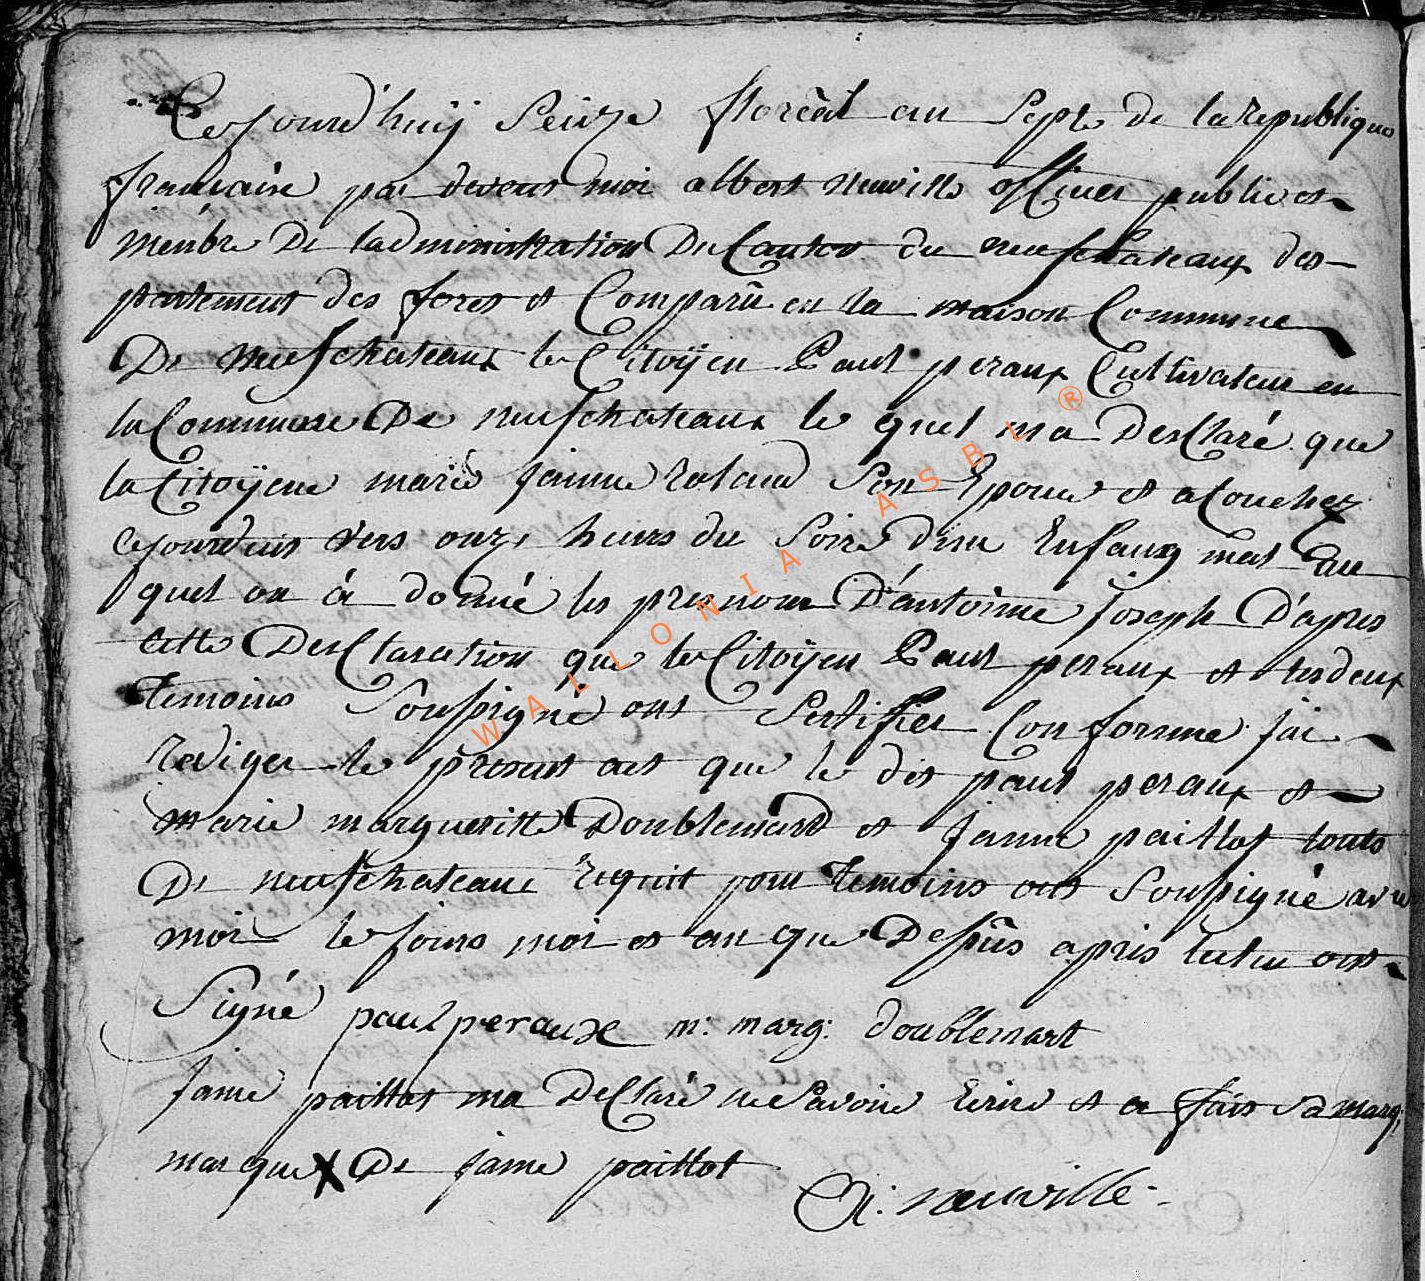 Cejourd'huÿ Seize floreal an Sept de la republique
francaise par devent moi albert neuville officier public et
menbre De ladministration Du Canton du neufchateaux des-
partement des foret et Comparu en la maison Commune
De neufchateaux le Citoÿen Paul peraux Cultivateur en
la Commune De neufchateaux le quel ma Desclaré que
la Citoÿene marie Jeanne roland Son Epouse et acouchez
cejourduis vers onze heurs du Soire dun Enfang mal au
quel on à donné les prenom D'antoinne Joseph D'apres
cette Desclaration que le Citoÿen Paul peraux et les deux
temoins Soussigné ont Sertifier Conforme jai
rediger le present act que le dit paul peraux et
marie margueritte Doublemard et janne paillot touts
De neufchateaux requit pour temoins ont Soussigné avec
moi le jours moi et an que Dessus apris lectu ont
Signé paul peraux m: marg: doublemart
janne paillot ma Declaré ne Savoire Ecrire et a fait sa marq:
marque X De janne paillot
A: neuville
WALLONIA ASBL ®